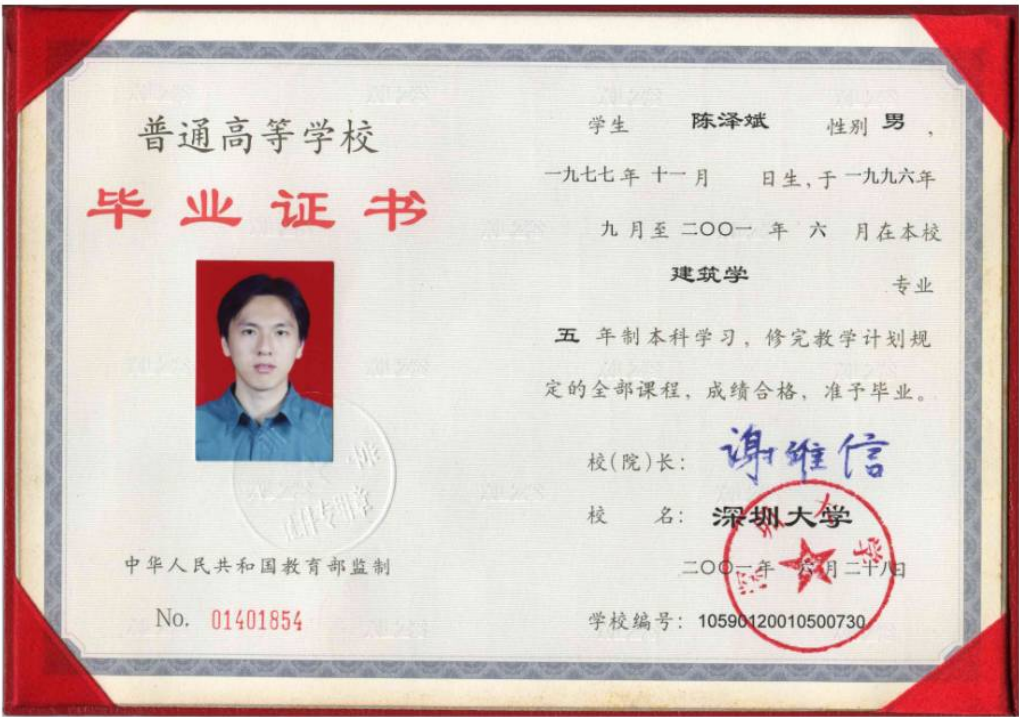 普通高等学校
毕业证书
中华人民共和国教育部监制
No. 01401854
学生 陈泽斌 性别 男，
一九七七年 十一月 日生，于 一九九六年
九 月至 二〇〇一 年 六 月在本校
建筑学 专业
五 年制本科学习，修完教学计划规
定的全部课程，成绩合格，准予毕业。
校(院)长： 谢维信
校 名： 深圳大学
二〇〇一年 六月二十八日
学校编号： 10590120010500730
深圳大学